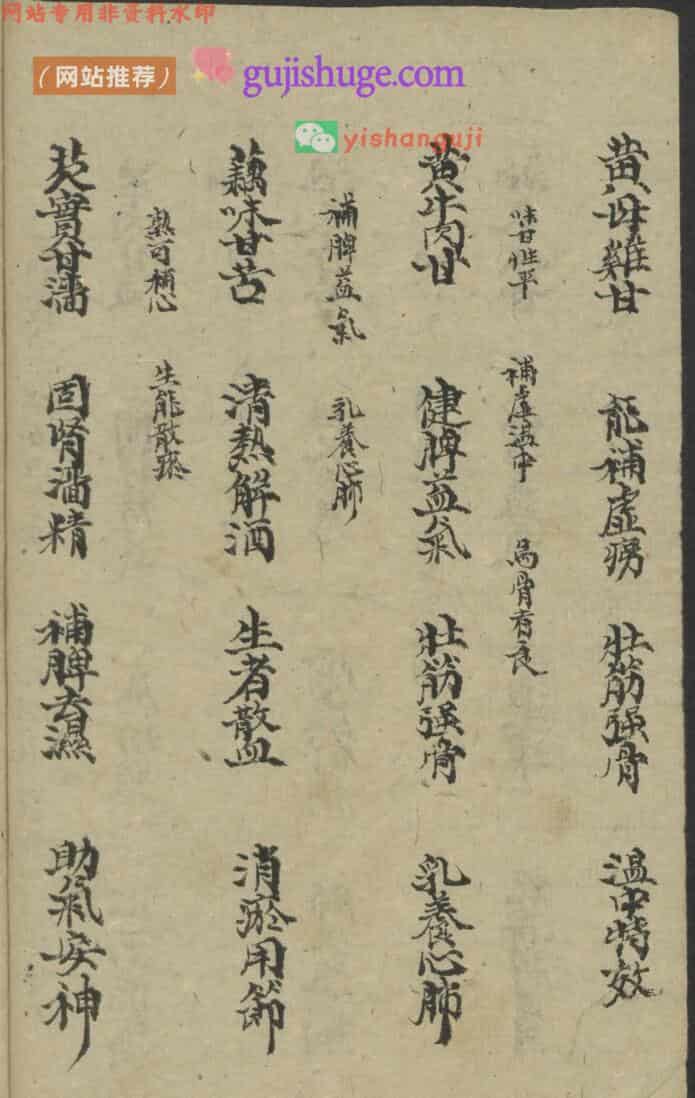 网站专用非资料水印
(网站推荐) gujishuge.com
yishanguji
黄母雞甘 能補虚痨 壯筋强骨 温中特效
味甘性平 補虚温中 烏骨者良
黄牛肉甘 健脾益氣 壯筋强骨 乳養心肺
補脾益氣 乳養心肺
藕味甘苦 清熱解酒 生者散血 消瘀用節
熟可補心 生能散瘀
芡實甘濇 固肾濇精 補脾去濕 助氣安神